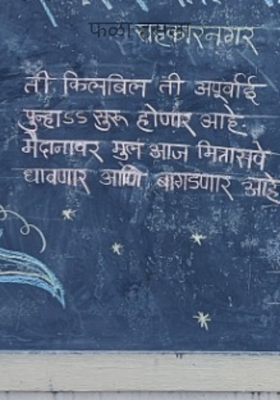 फळा
सहकारनगर
ती किलबिल ती अपूर्वाई
पुन्हाऽऽ सुरू होणार आहे.
मैदानावर मुलं आज मित्रासवे
धावणार आणि बागडणार आहे